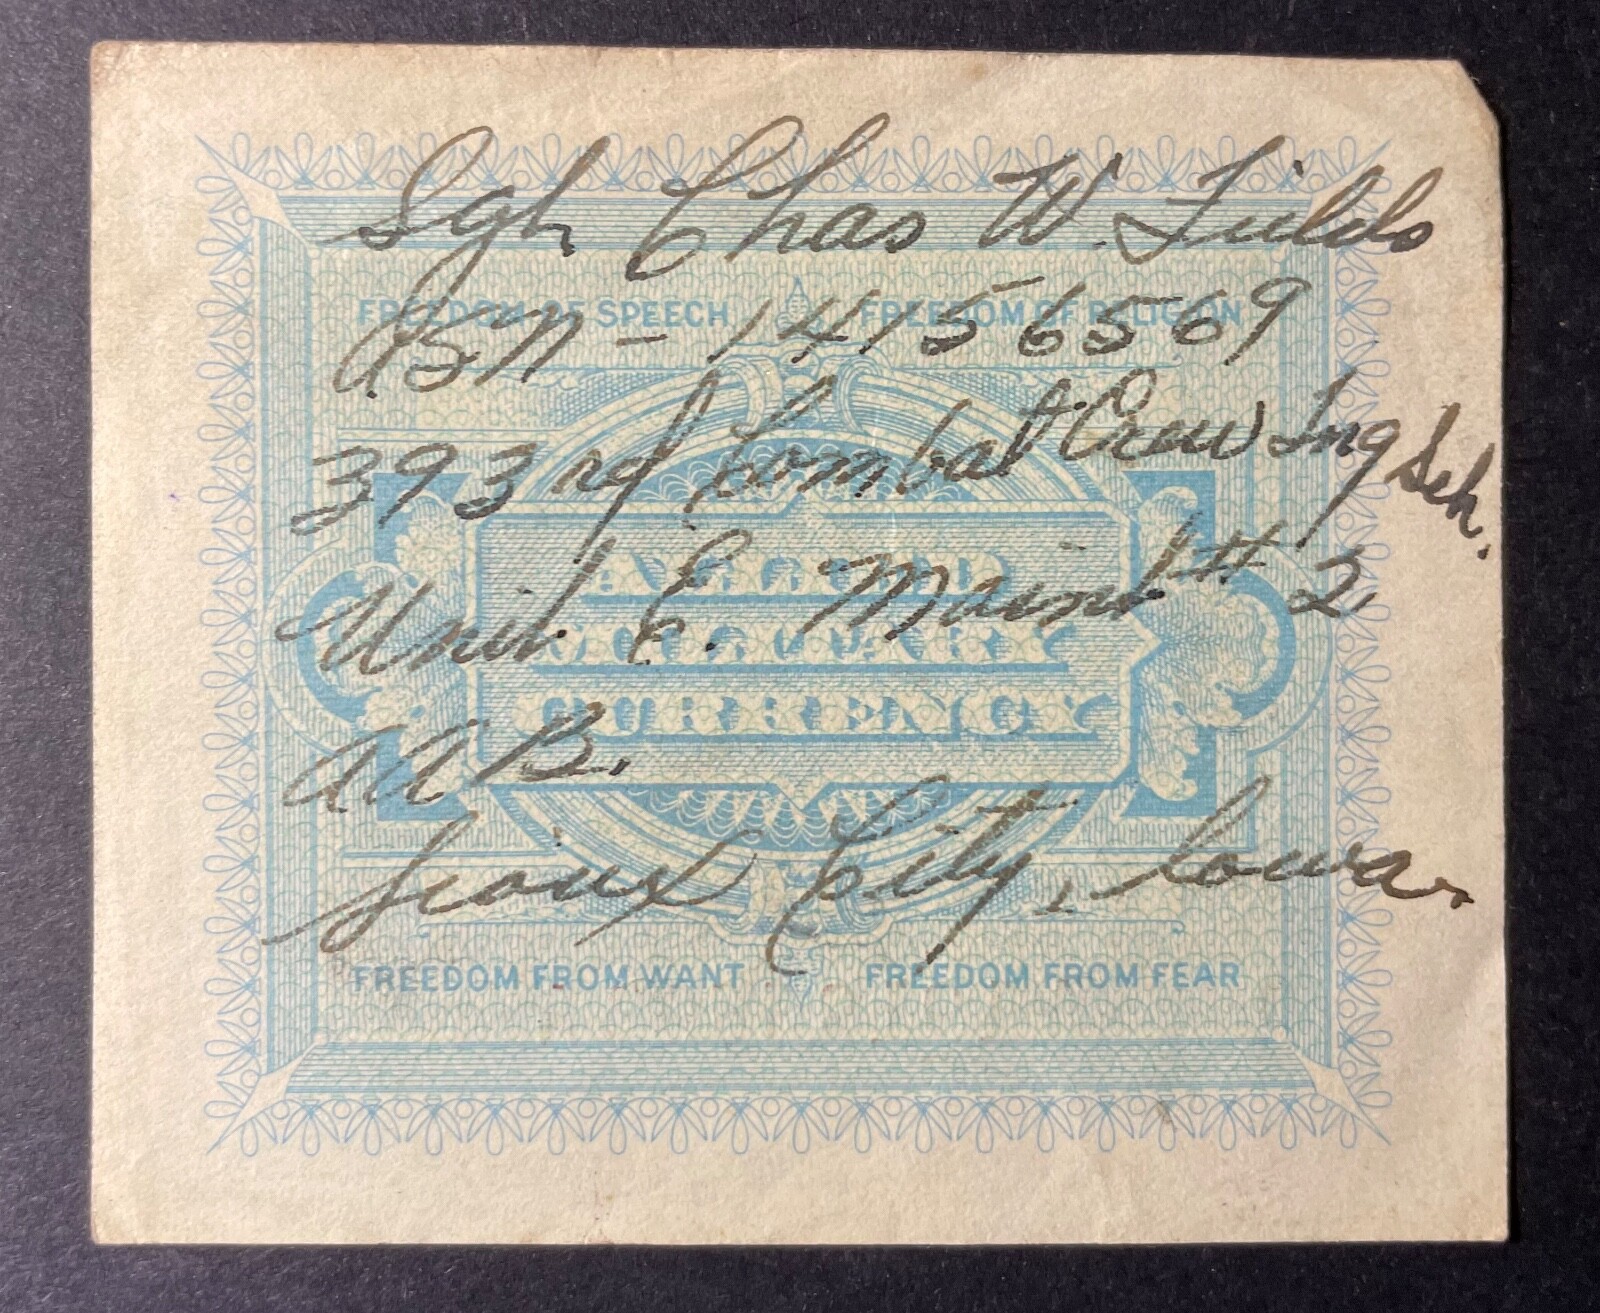 Sgt Chas W. Fields
FREEDOM OF SPEECH FREEDOM OF RELIGION
ASN - 14156569
393rd Combat Crew Tng Sch.
ALLIED
Unit E. Maint # 2
MILITARY
CURRENCY
AAB.
Sioux City, Iowa.
FREEDOM FROM WANT FREEDOM FROM FEAR